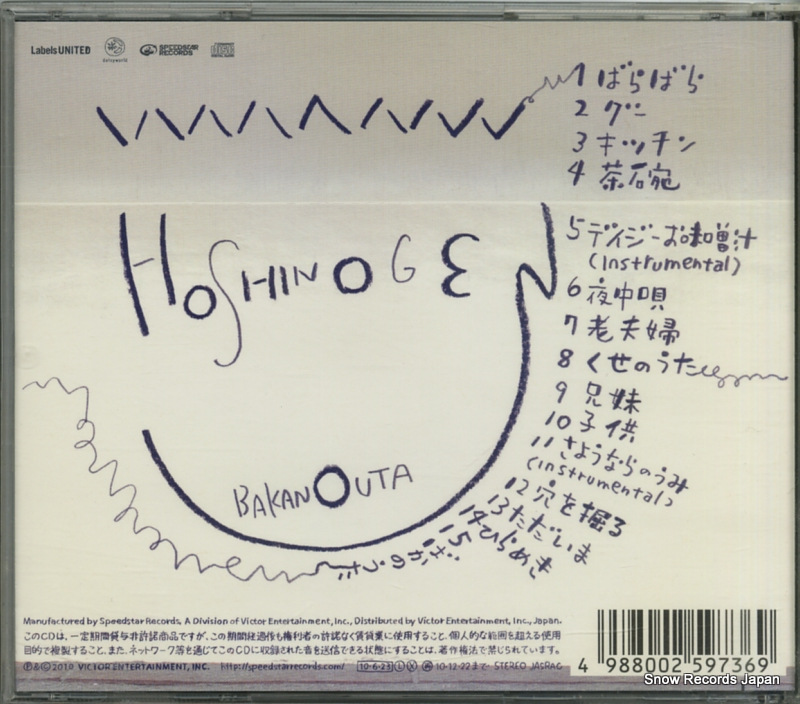 Labels UNITED
daisyworld
SPEEDSTAR RECORDS
1 ばらばら
2 グー
3 キッチン
4 茶碗
5 デイジーお味噌汁
(Instrumental)
6 夜中唄
7 老夫婦
8 くせのうた
9 兄妹
10 子供
11 さようならのうみ
(instrumental)
12 穴を掘る
13 ただいま
14 ひらめき
15 ばかのうた
HOSHINO GEN
BAKA NO UTA
Manufactured by Speedstar Records, A Division of Victor Entertainment, Inc., Distributed by Victor Entertainment, Inc., Japan.
このCDは、一定期間貸与非許諾商品ですが、この期間経過後も権利者の許諾なく賃貸業に使用すること、個人的な範囲を超える使用
目的で複製すること、また、ネットワーク等を通じてこのCDに収録された音を送信できる状態にすることは、著作権法で禁じられています。
Ⓟ&©2010 VICTOR ENTERTAINMENT, INC. http://speedstarrecords.com/ 10・6・23 Ⓛ Ⓧ 10・12・22まで STEREO JASRAC
4 988002 597369
Snow Records Japan